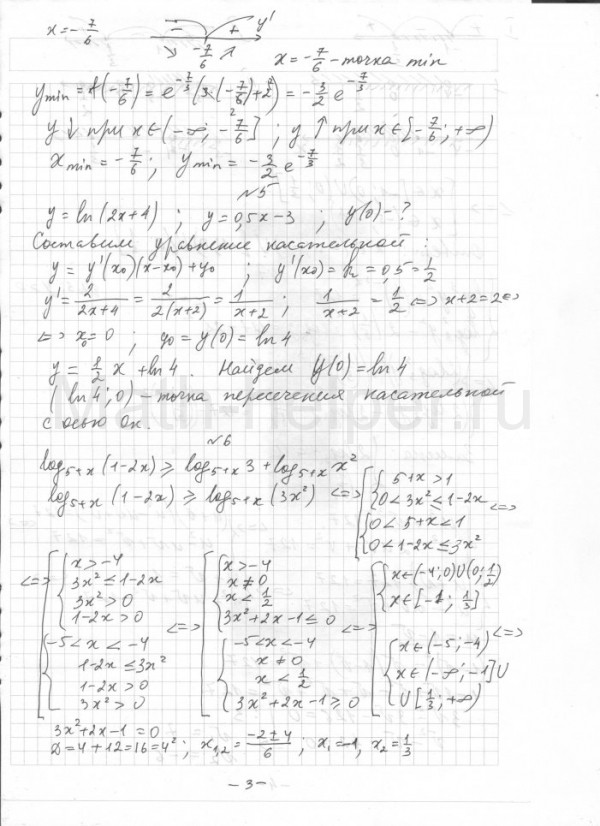 x = -7/6 − + y'
-7/6 x = -7/6 - точка min
y min = f(-7/6) = e^(-7/3) (3·(-7/6)+2) = -3/2 e^(-7/3)
y ↓ при x ∈ (-∞; -7/6] ; y ↑ при x ∈ [-7/6; +∞)
x min = -7/6 ; y min = -3/2 e^(-7/3)
№5
y = ln(2x+4) ; y = 0,5x-3 ; y(0) - ?
Составим уравнение касательной :
y = y'(x₀)(x-x₀)+y₀ ; y'(x₀) = k = 0,5 = 1/2
y' = 2/(2x+4) = 2/(2(x+2)) = 1/(x+2) ; 1/(x+2) = 1/2 <=> x+2=2 <=>
<=> x₀=0 ; y₀ = y(0) = ln 4
y = 1/2 x + ln 4 . Найдем y(0) = ln 4
(ln 4; 0) - точка пересечения касательной
с осью Ox.
Math-helper.ru
№6
log₅₊ₓ(1-2x) ≥ log₅₊ₓ 3 + log₅₊ₓ x²
log₅₊ₓ(1-2x) ≥ log₅₊ₓ(3x²) <=> [ { 5+x > 1
0 < 3x² ≤ 1-2x <=>
{ 0 < 5+x < 1
0 < 1-2x ≤ 3x²
<=> [ { x > -4
3x² ≤ 1-2x
3x² > 0
1-2x > 0
{ -5 < x < -4
1-2x ≤ 3x²
1-2x > 0
3x² > 0
<=> [ { x > -4
x ≠ 0
x < 1/2
3x²+2x-1 ≤ 0
{ -5 < x < -4
x ≠ 0
x < 1/2
3x²+2x-1 ≥ 0
<=> [ { x ∈ (-4; 0) U (0; 1/2)
x ∈ [-1; 1/3]
{ x ∈ (-5; -4) <=>
x ∈ (-∞; -1] U
U [1/3; +∞)
3x²+2x-1 = 0
D = 4+12 = 16 = 4² ; x₁,₂ = (-2±4)/6 ; x₁ = -1, x₂ = 1/3
- 3 -